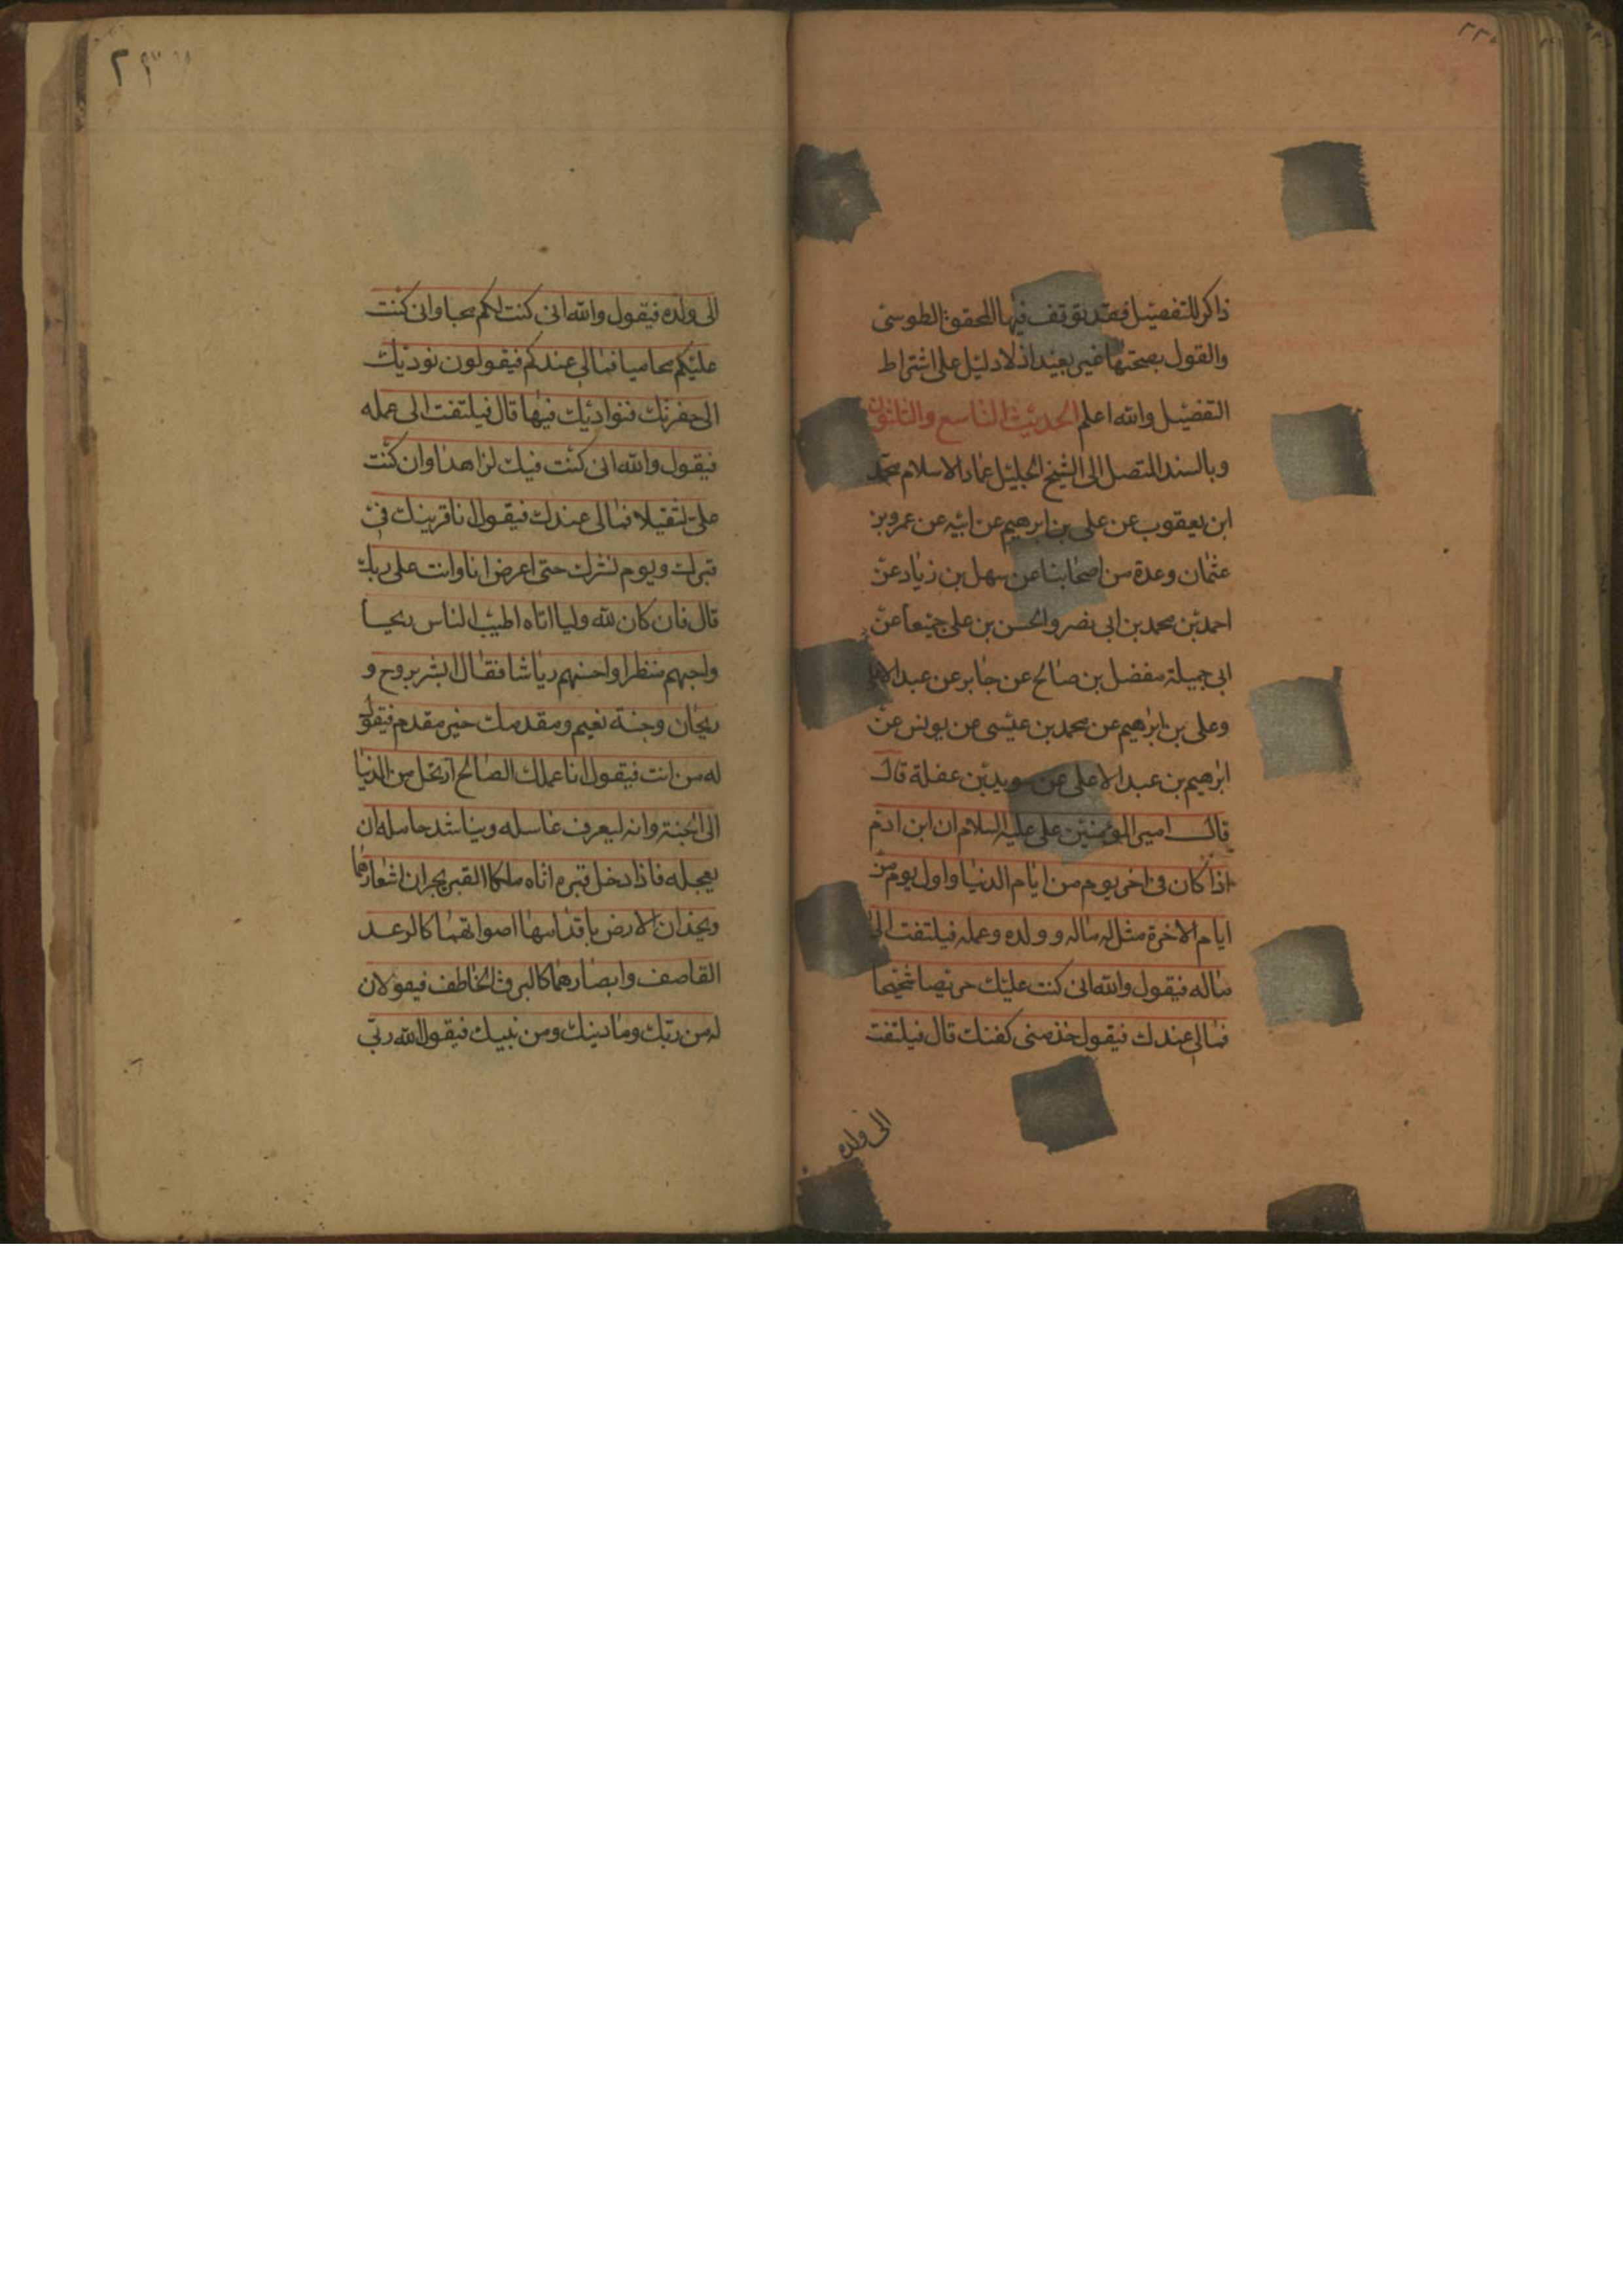 ذاكر للتفصيل فقد توقف فيها المحقق الطوسي
والقول بصحتها غير بعيد اذ لا دليل على اشتراط
التفصيل والله اعلم الحديث التاسع والثلثون
وبالسند المتصل الى الشيخ الجليل عماد الاسلام محمد
ابن يعقوب عن على بن ابرهيم عن ابيه عن عمرو بن
عثمان وعدة من اصحابنا عن سهل بن زياد عن
احمد بن محمد بن ابى نصر والحسن بن على جميعا عن
ابى جميلة مفضل بن صالح عن جابر عن عبد الاعلى
وعلى بن ابرهيم عن محمد بن عيسى عن يونس عن
ابرهيم بن عبد الاعلى عن سويد بن عفلة قال
قال امير المؤمنين على عليه السلام ان ابن ادم
اذا كان فى اخر يوم من ايام الدنيا واول يوم من
ايام الاخرة مثل له ماله وولده وعمله فيلتفت الى
ماله فيقول والله انى كنت عليك حريصا شحيحا
فمالى عندك فيقول خذ منى كفنك قال فيلتفت
الى ولده
الى ولده فيقول والله انى كنت لكم محبا وانى كنت
عليكم محاميا فمالى عندكم فيقولون نوديك
الى حفرتك فنواريك فيها قال فيلتفت الى عمله
فيقول والله انى كنت فيك لزاهدا وان كنت
على لثقيلا فمالى عندك فيقول انا قرينك فى
قبرك ويوم نشرك حتى اعرض انا وانت على ربك
قال فان كان لله وليا اتاه اطيب الناس ريحا
واجبهم منظرا واحسنهم رياشا فقال ابشر بروح و
ريحان وجنة نعيم ومقدمك خير مقدم فيقول
له من انت فيقول انا عملك الصالح ارتحل من الدنيا
الى الجنة وانه ليعرف غاسله ويناشد حامله ان
يعجله فاذا دخل قبره اتاه ملكا القبر يجران اشعارهما
ويخدان الارض باقدامهما اصواتهما كالرعد
القاصف وابصارهما كالبرق الخاطف فيقولان
له من ربك وما دينك ومن نبيك فيقول الله ربى